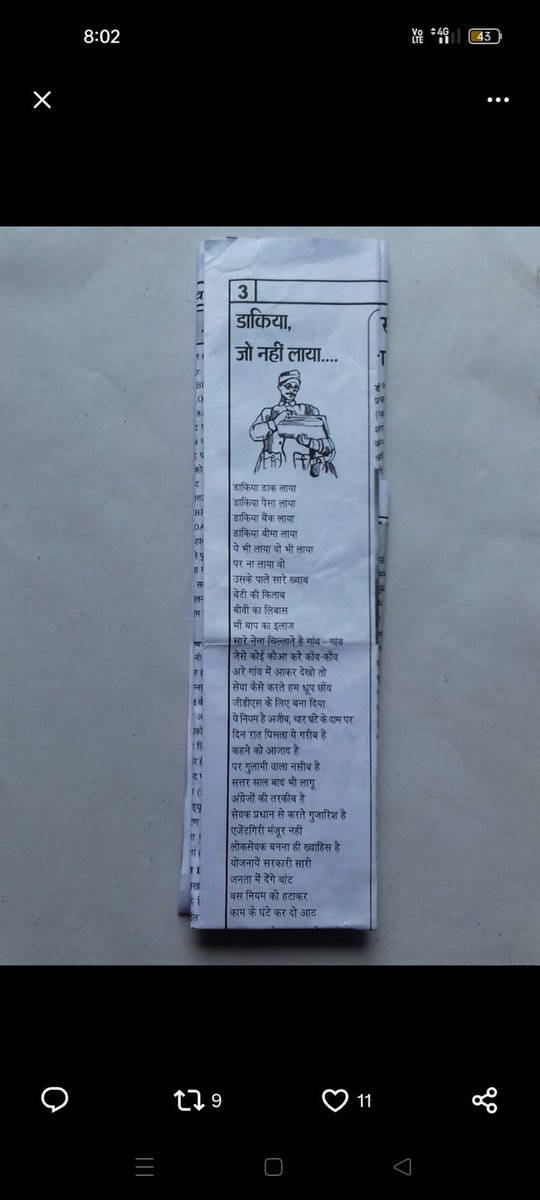 8:02
Vo
LTE
4G
43
3
डाकिया,
जो नहीं लाया....
डाकिया डाक लाया
डाकिया पैसा लाया
डाकिया बैंक लाया
डाकिया बीमा लाया
ये भी लाया वो भी लाया
पर ना लाया वो
उसके पाले सारे ख्वाब
बेटी की किताब
बीवी का लिबास
माँ बाप का इलाज
सारे नेता चिल्लाते है गांव - गांव
जैसे कोई कौआ करे काँव-काँव
अरे गांव में आकर देखो तो
सेवा कैसे करते हम धूप छाँव
जीडीएस के लिए बना दिया
ये नियम है अजीब, चार घंटे के दाम पर
दिन रात पिसता ये गरीब है
कहने को आजाद है
पर गुलामी वाला नसीब है
सत्तर साल बाद भी लागू
अंग्रेजों की तरकीब है
सेवक प्रधान से करते गुजारिश है
एजेंटगिरी मंजूर नहीं
लोकसेवक बनना ही ख्वाहिस है
योजनायें सरकारी सारी
जनता में देंगे बांट
बस नियम को हटाकर
काम के घंटे कर दो आठ
9
11